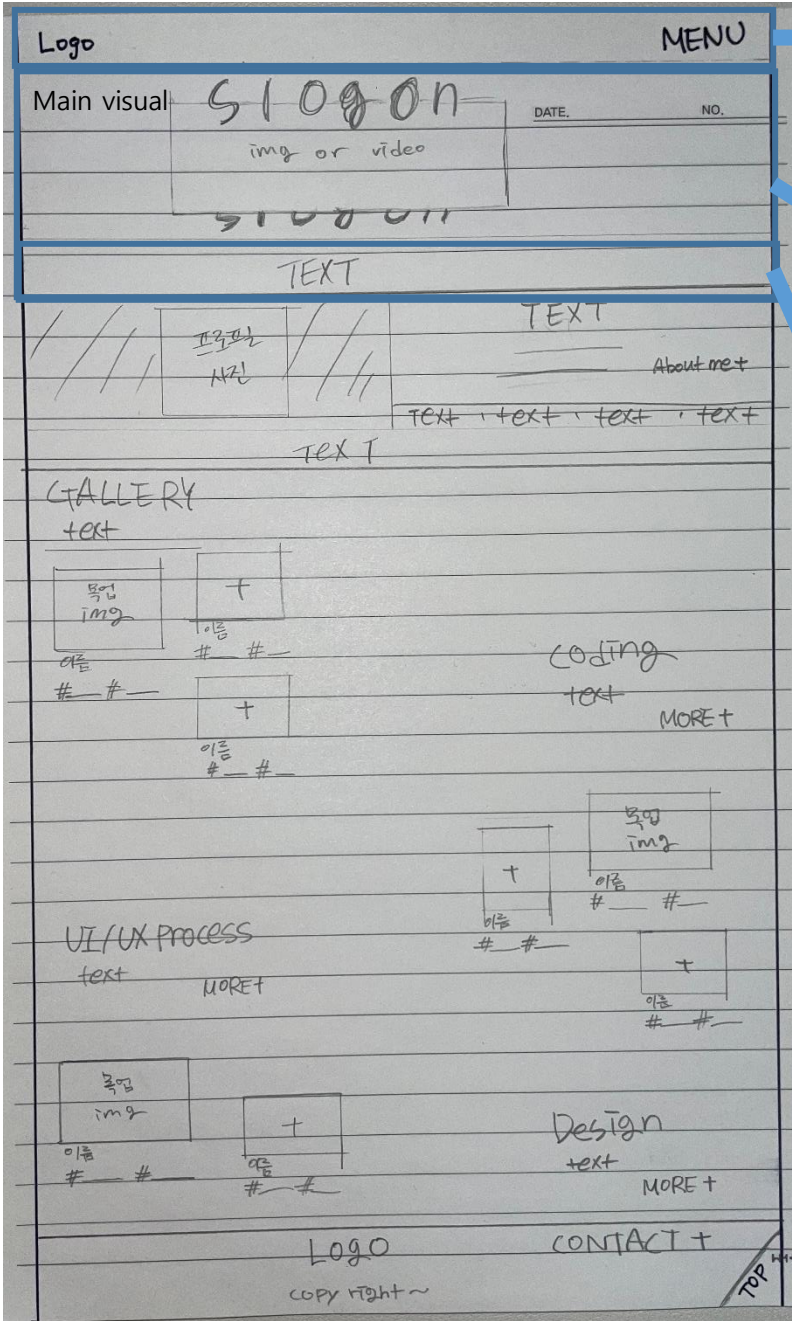 Logo MENU
Main visual
Slogan
DATE. NO.
img or video
TEXT
프로필
사진
TEXT
About me+
Text · text · text · text
TEXT
GALLERY
text
목업
img
+
이름
# #
이름
# #
+
이름
# #
coding
text
MORE+
목업
img
+
이름
# #
이름
# #
+
이름
# #
UI/UX process
text
MORE+
목업
img
+
이름
# #
이름
# #
Design
text
MORE+
LOGO
CONTACT +
copy right~
TOP